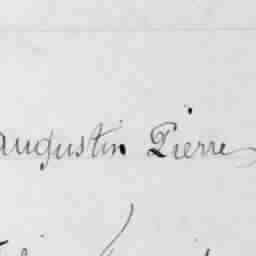 augustin Pierre